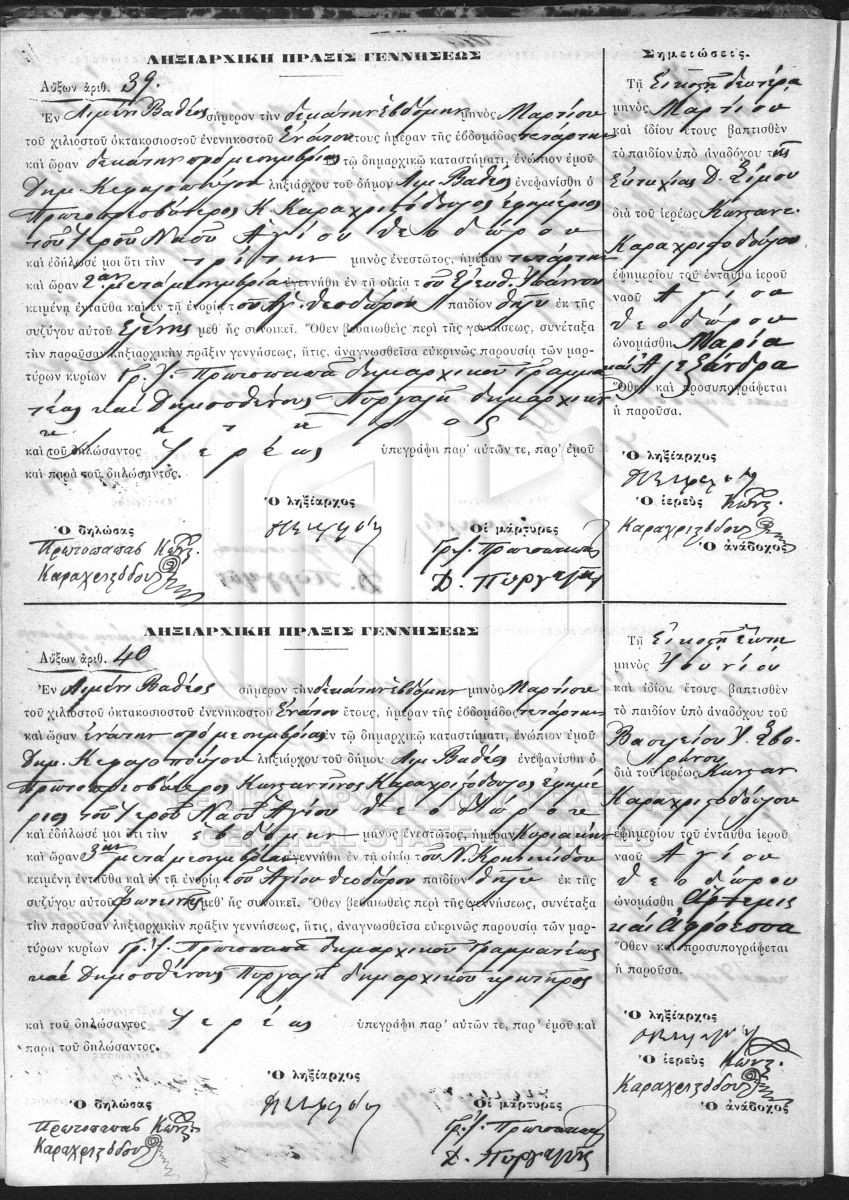 ΛΗΞΙΑΡΧΙΚΗ ΠΡΑΞΙΣ ΓΕΝΝΗΣΕΩΣ
Αὔξων ἀριθ. 39.
Ἐν Λιμένι Βαθέος σήμερον τὴν δεκάτην ἑβδόμην μηνὸς Μαρτίου
τοῦ χιλιοστοῦ ὀκτακοσιοστοῦ ἐνενηκοστοῦ Ἐνάτου ἔτους ἡμέραν τῆς ἑβδομάδος τετάρτην
καὶ ὥραν δεκάτην πρὸ μεσημβρίας ἐν τῷ δημαρχικῷ καταστήματι, ἐνώπιον ἐμοῦ
Δημ. Κεφαλοπούλου ληξιάρχου τοῦ δήμου Λιμ. Βαθέος ἐνεφανίσθη ὁ
Πρωτοπρεσβύτερος Κ. Καραχριστόδουλος Ἐφημέριος
τοῦ Ἱεροῦ Ναοῦ Ἁγίου Θεοδώρου
καὶ ἐδήλωσέ μοι ὅτι τὴν τρίτην μηνὸς ἐνεστῶτος, ἡμέραν τετάρτην
καὶ ὥραν 2αν μετὰ μεσημβρίαν ἐγεννήθη ἐν τῇ οἰκίᾳ τοῦ
κειμένῃ ἐνταῦθα καὶ ἐν τῇ ἐνορίᾳ τοῦ Ἁγ. Θεοδώρου παιδίον θῆλυ ἐκ τῆς
συζύγου αὐτοῦ Ἑλένης μεθ᾽ ἧς συνοικεῖ. Ὅθεν βεβαιωθεὶς περὶ τῆς γεννήσεως, συνέταξα
τὴν παροῦσαν ληξιαρχικὴν πρᾶξιν γεννήσεως, ἥτις, ἀναγνωσθεῖσα εὐκρινῶς παρουσίᾳ τῶν μαρ-
τύρων κυρίων Γρ. Ἰ. Πρωτοπαπᾶ δημαρχικοῦ Γραμμα
τέως καὶ Δημοσθένους Πυργαλῆ δημαρχικοῦ
κλητῆρος
καὶ τοῦ δηλώσαντος Ἱερέως ὑπεγράφη παρ᾽ αὐτῶν τε, παρ᾽ ἐμοῦ
καὶ παρὰ τοῦ δηλώσαντος.
Ὁ δηλώσας
Ὁ ληξίαρχος
Οἱ μάρτυρες
Πρωτοπαπᾶς Κωνσ.
Καραχριστόδουλος
Γρ. Ἰ. Πρωτοπαπᾶς
Δ. Πυργαλῆς
Σημειώσεις.
Τῇ Εἰκοστῇ δευτέρᾳ
μηνὸς Μαρτίου
καὶ ἰδίου ἔτους βαπτισθὲν
τὸ παιδίον ὑπὸ ἀναδόχου τῆς
Εὐτυχίας Δ. Σίμου
διὰ τοῦ ἱερέως Κωνσταν.
Καραχριστοδούλου
ἐφημερίου τοῦ ἐνταῦθα ἱεροῦ
ναοῦ Ἁγίου
Θεοδώρου
ὠνομάσθη Μαρία
καὶ Ἀλεξάνδρα
Ὅθεν καὶ προσυπογράφεται
ἡ παροῦσα.
Ὁ ληξίαρχος
Ὁ ἱερεὺς Κωνσ.
Καραχριστόδουλος
Ὁ ἀνάδοχος
ΛΗΞΙΑΡΧΙΚΗ ΠΡΑΞΙΣ ΓΕΝΝΗΣΕΩΣ
Αὔξων ἀριθ. 40
Ἐν Λιμένι Βαθέος σήμερον τὴν δεκάτην ἑβδόμην μηνὸς Μαρτίου
τοῦ χιλιοστοῦ ὀκτακοσιοστοῦ ἐνενηκοστοῦ Ἐνάτου ἔτους, ἡμέραν τῆς ἑβδομάδος τετάρτην
καὶ ὥραν ἐνάτην πρὸ μεσημβρίας ἐν τῷ δημαρχικῷ καταστήματι, ἐνώπιον ἐμοῦ
Δημ. Κεφαλοπούλου ληξιάρχου τοῦ δήμου Λιμ. Βαθέος ἐνεφανίσθη ὁ
Πρωτοπρεσβύτερος Κωνσταντῖνος Καραχριστόδουλος Ἐφημέ
ριος τοῦ Ἱεροῦ Ναοῦ Ἁγίου Θεοδώρου
καὶ ἐδήλωσέ μοι ὅτι τὴν ἑβδόμην μηνὸς ἐνεστῶτος, ἡμέραν Κυριακὴν
καὶ ὥραν 3ην μετὰ μεσημβρίαν ἐγεννήθη ἐν τῇ οἰκίᾳ τοῦ Ν. Κρητικίδου
κειμένῃ ἐνταῦθα καὶ ἐν τῇ ἐνορίᾳ τοῦ Ἁγίου Θεοδώρου παιδίον θῆλυ ἐκ τῆς
συζύγου αὐτοῦ Φωτεινῆς μεθ᾽ ἧς συνοικεῖ. Ὅθεν βεβαιωθεὶς περὶ τῆς γεννήσεως, συνέταξα
τὴν παροῦσαν ληξιαρχικὴν πρᾶξιν γεννήσεως, ἥτις, ἀναγνωσθεῖσα εὐκρινῶς παρουσίᾳ τῶν μαρ-
τύρων κυρίων Γρ. Ἰ. Πρωτοπαπᾶ δημαρχικοῦ Γραμματέως
καὶ Δημοσθένους Πυργαλῆ δημαρχικοῦ κλητῆρος
καὶ τοῦ δηλώσαντος Ἱερέως ὑπεγράφη παρ᾽ αὐτῶν τε, παρ᾽ ἐμοῦ καὶ
παρὰ τοῦ δηλώσαντος.
Ὁ δηλώσας
Ὁ ληξίαρχος
Οἱ μάρτυρες
Πρωτοπαπᾶς Κωνσ.
Καραχριστόδουλος
Γρ. Ἰ. Πρωτοπαπᾶς
Δ. Πυργαλῆς
Τῇ Εἰκοστῇ ἕκτῃ
μηνὸς Ἰουνίου
καὶ ἰδίου ἔτους βαπτισθὲν
τὸ παιδίον ὑπὸ ἀναδόχου τοῦ
Βασιλείου Ἰ. Σβο-
ρώνου
διὰ τοῦ ἱερέως Κωνσταν.
Καραχριστοδούλου
ἐφημερίου τοῦ ἐνταῦθα ἱεροῦ
ναοῦ Ἁγίου
Θεοδώρου
ὠνομάσθη Ἄρτεμις
καὶ Ἀφρόεσσα
Ὅθεν καὶ προσυπογράφεται
ἡ παροῦσα.
Ὁ ληξίαρχος
Ὁ ἱερεὺς Κωνσ.
Καραχριστόδουλος
Ὁ ἀνάδοχος
ΓΕΝΙΚΑ ΑΡΧΕΙΑ ΤΟΥ ΚΡΑΤΟΥΣ
GENERAL STATE ARCHIVES